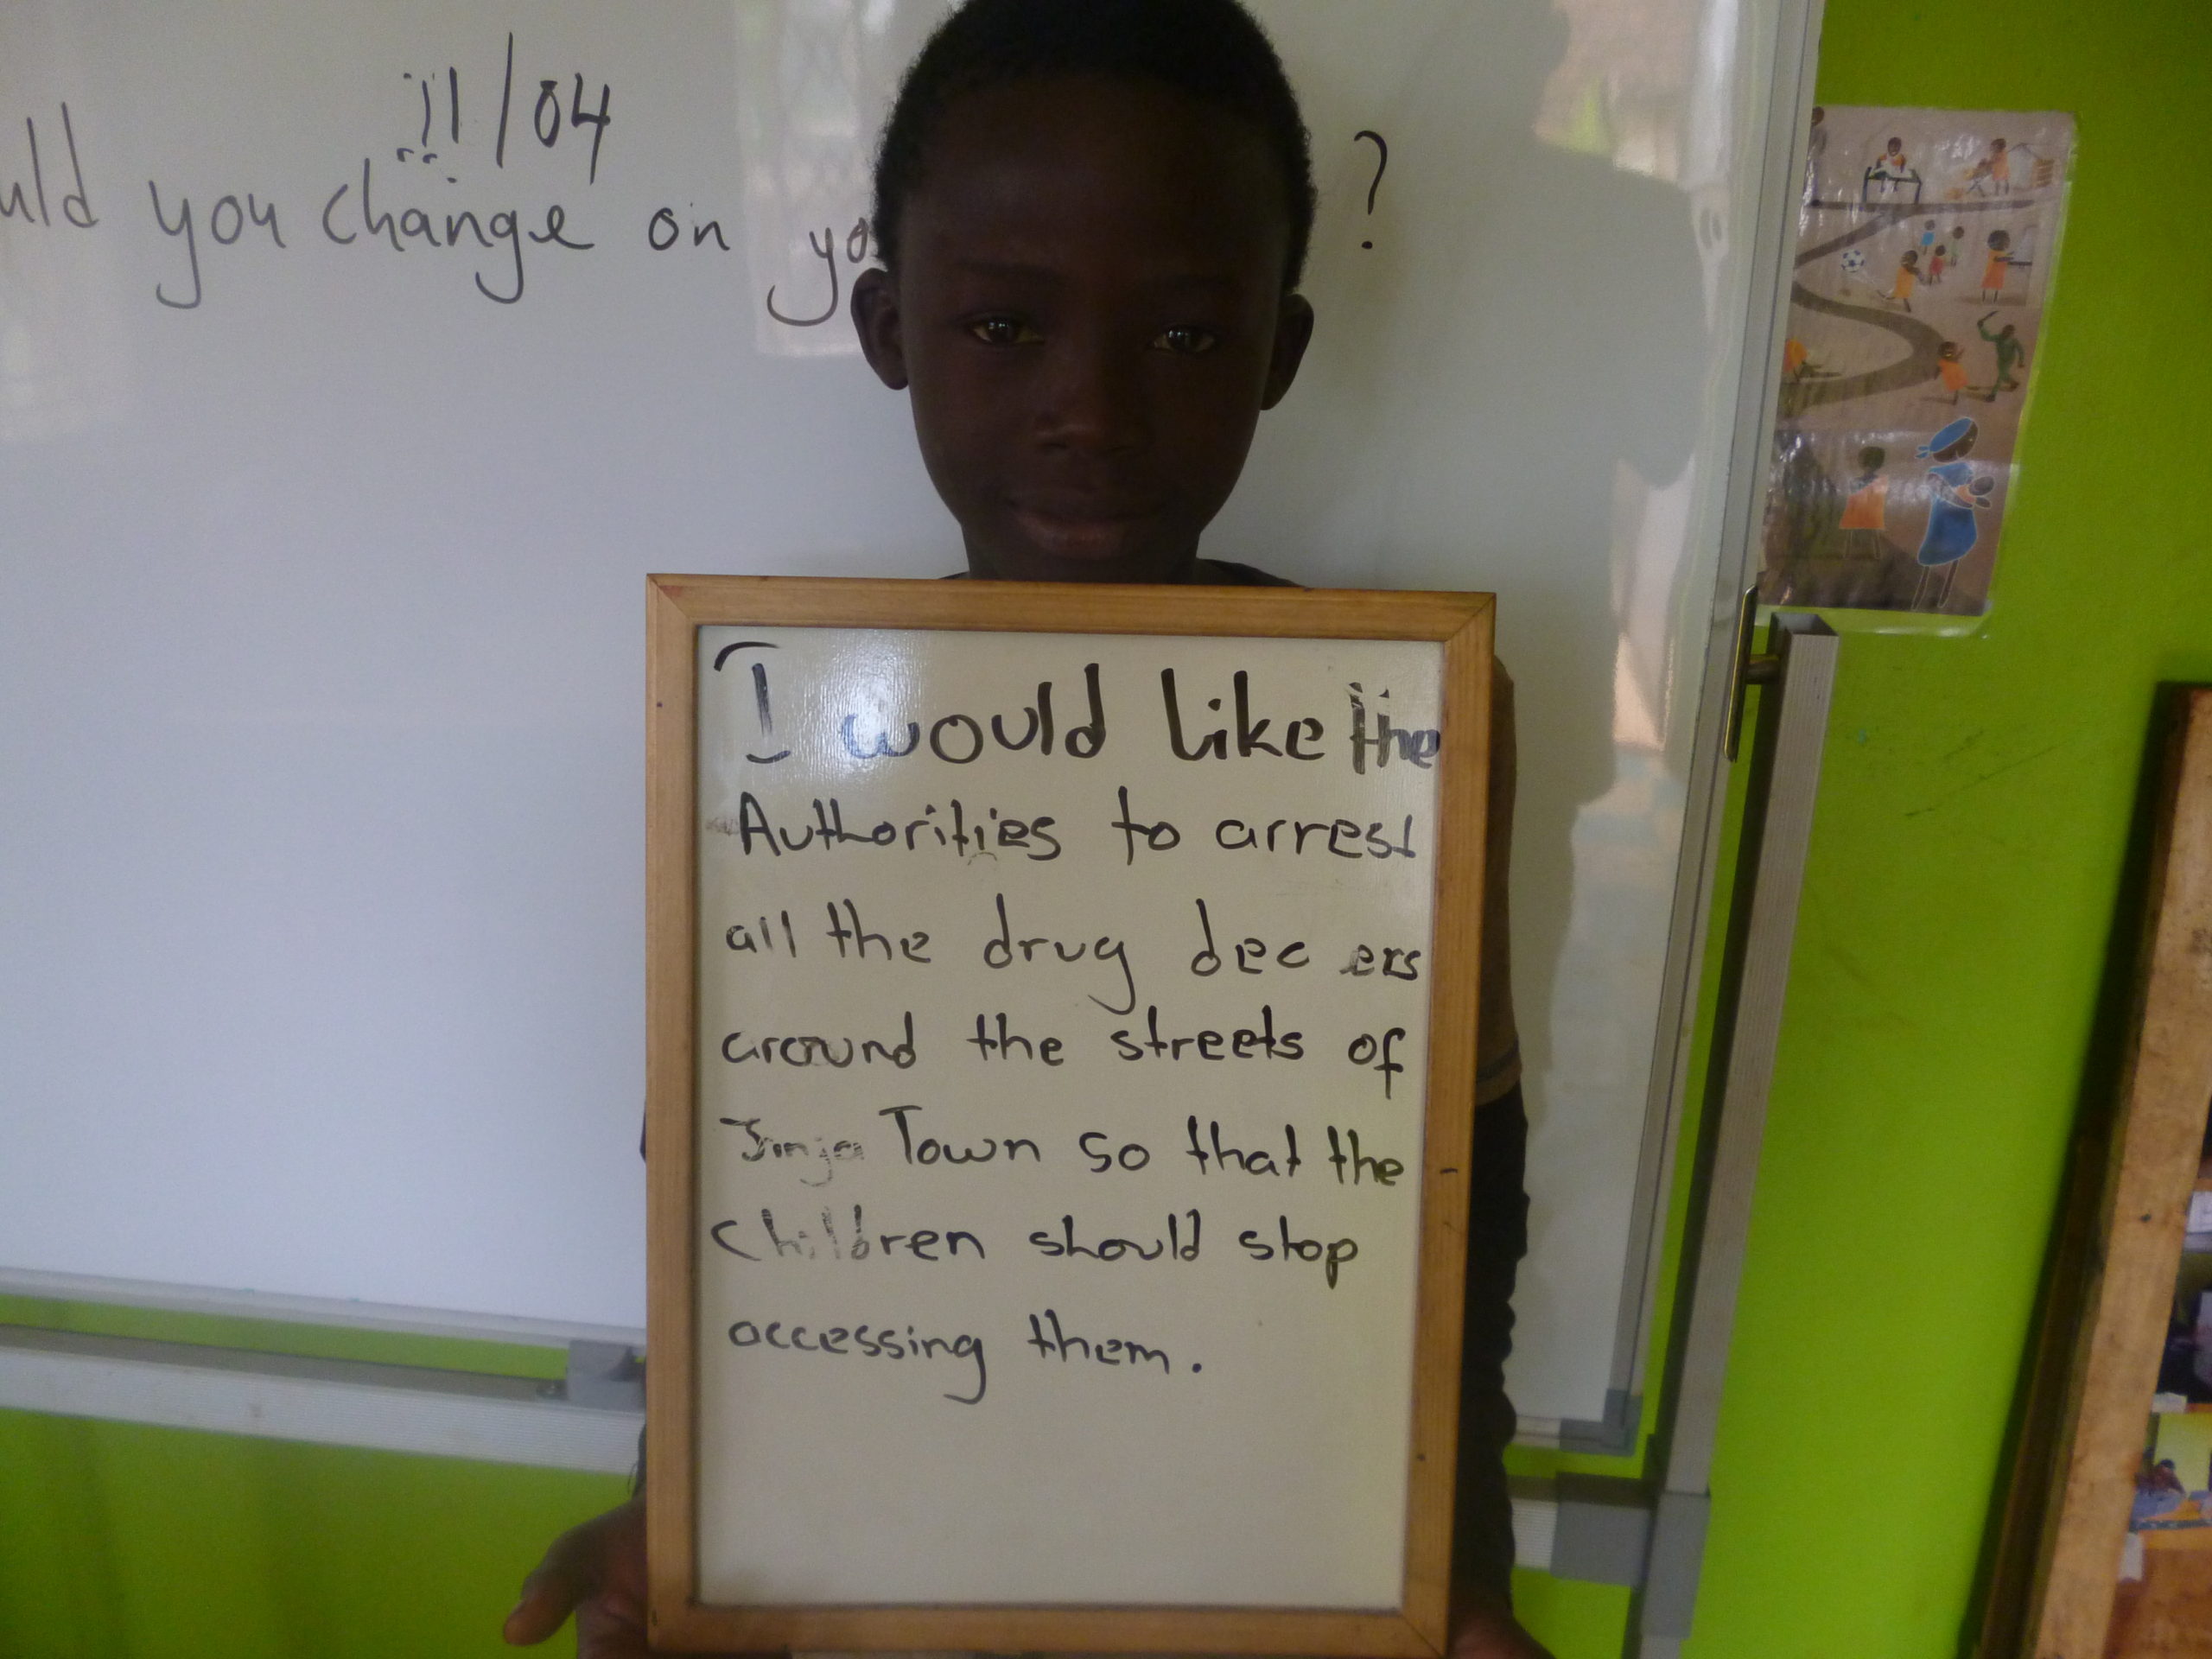 11/04
uld you change on yo ?
I would like the
Authorities to arrest
all the drug dec ers
around the streets of
Jinja Town so that the
children should stop
accessing them.